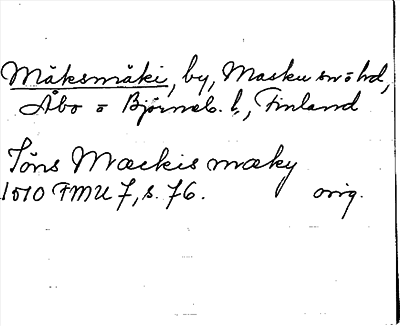 Mäksmäki, by, Masku sn o hd,
Åbo o Björneb. l., Finland
Jöns Mæckis mæky
1510 FMU 7, s. 76. orig.